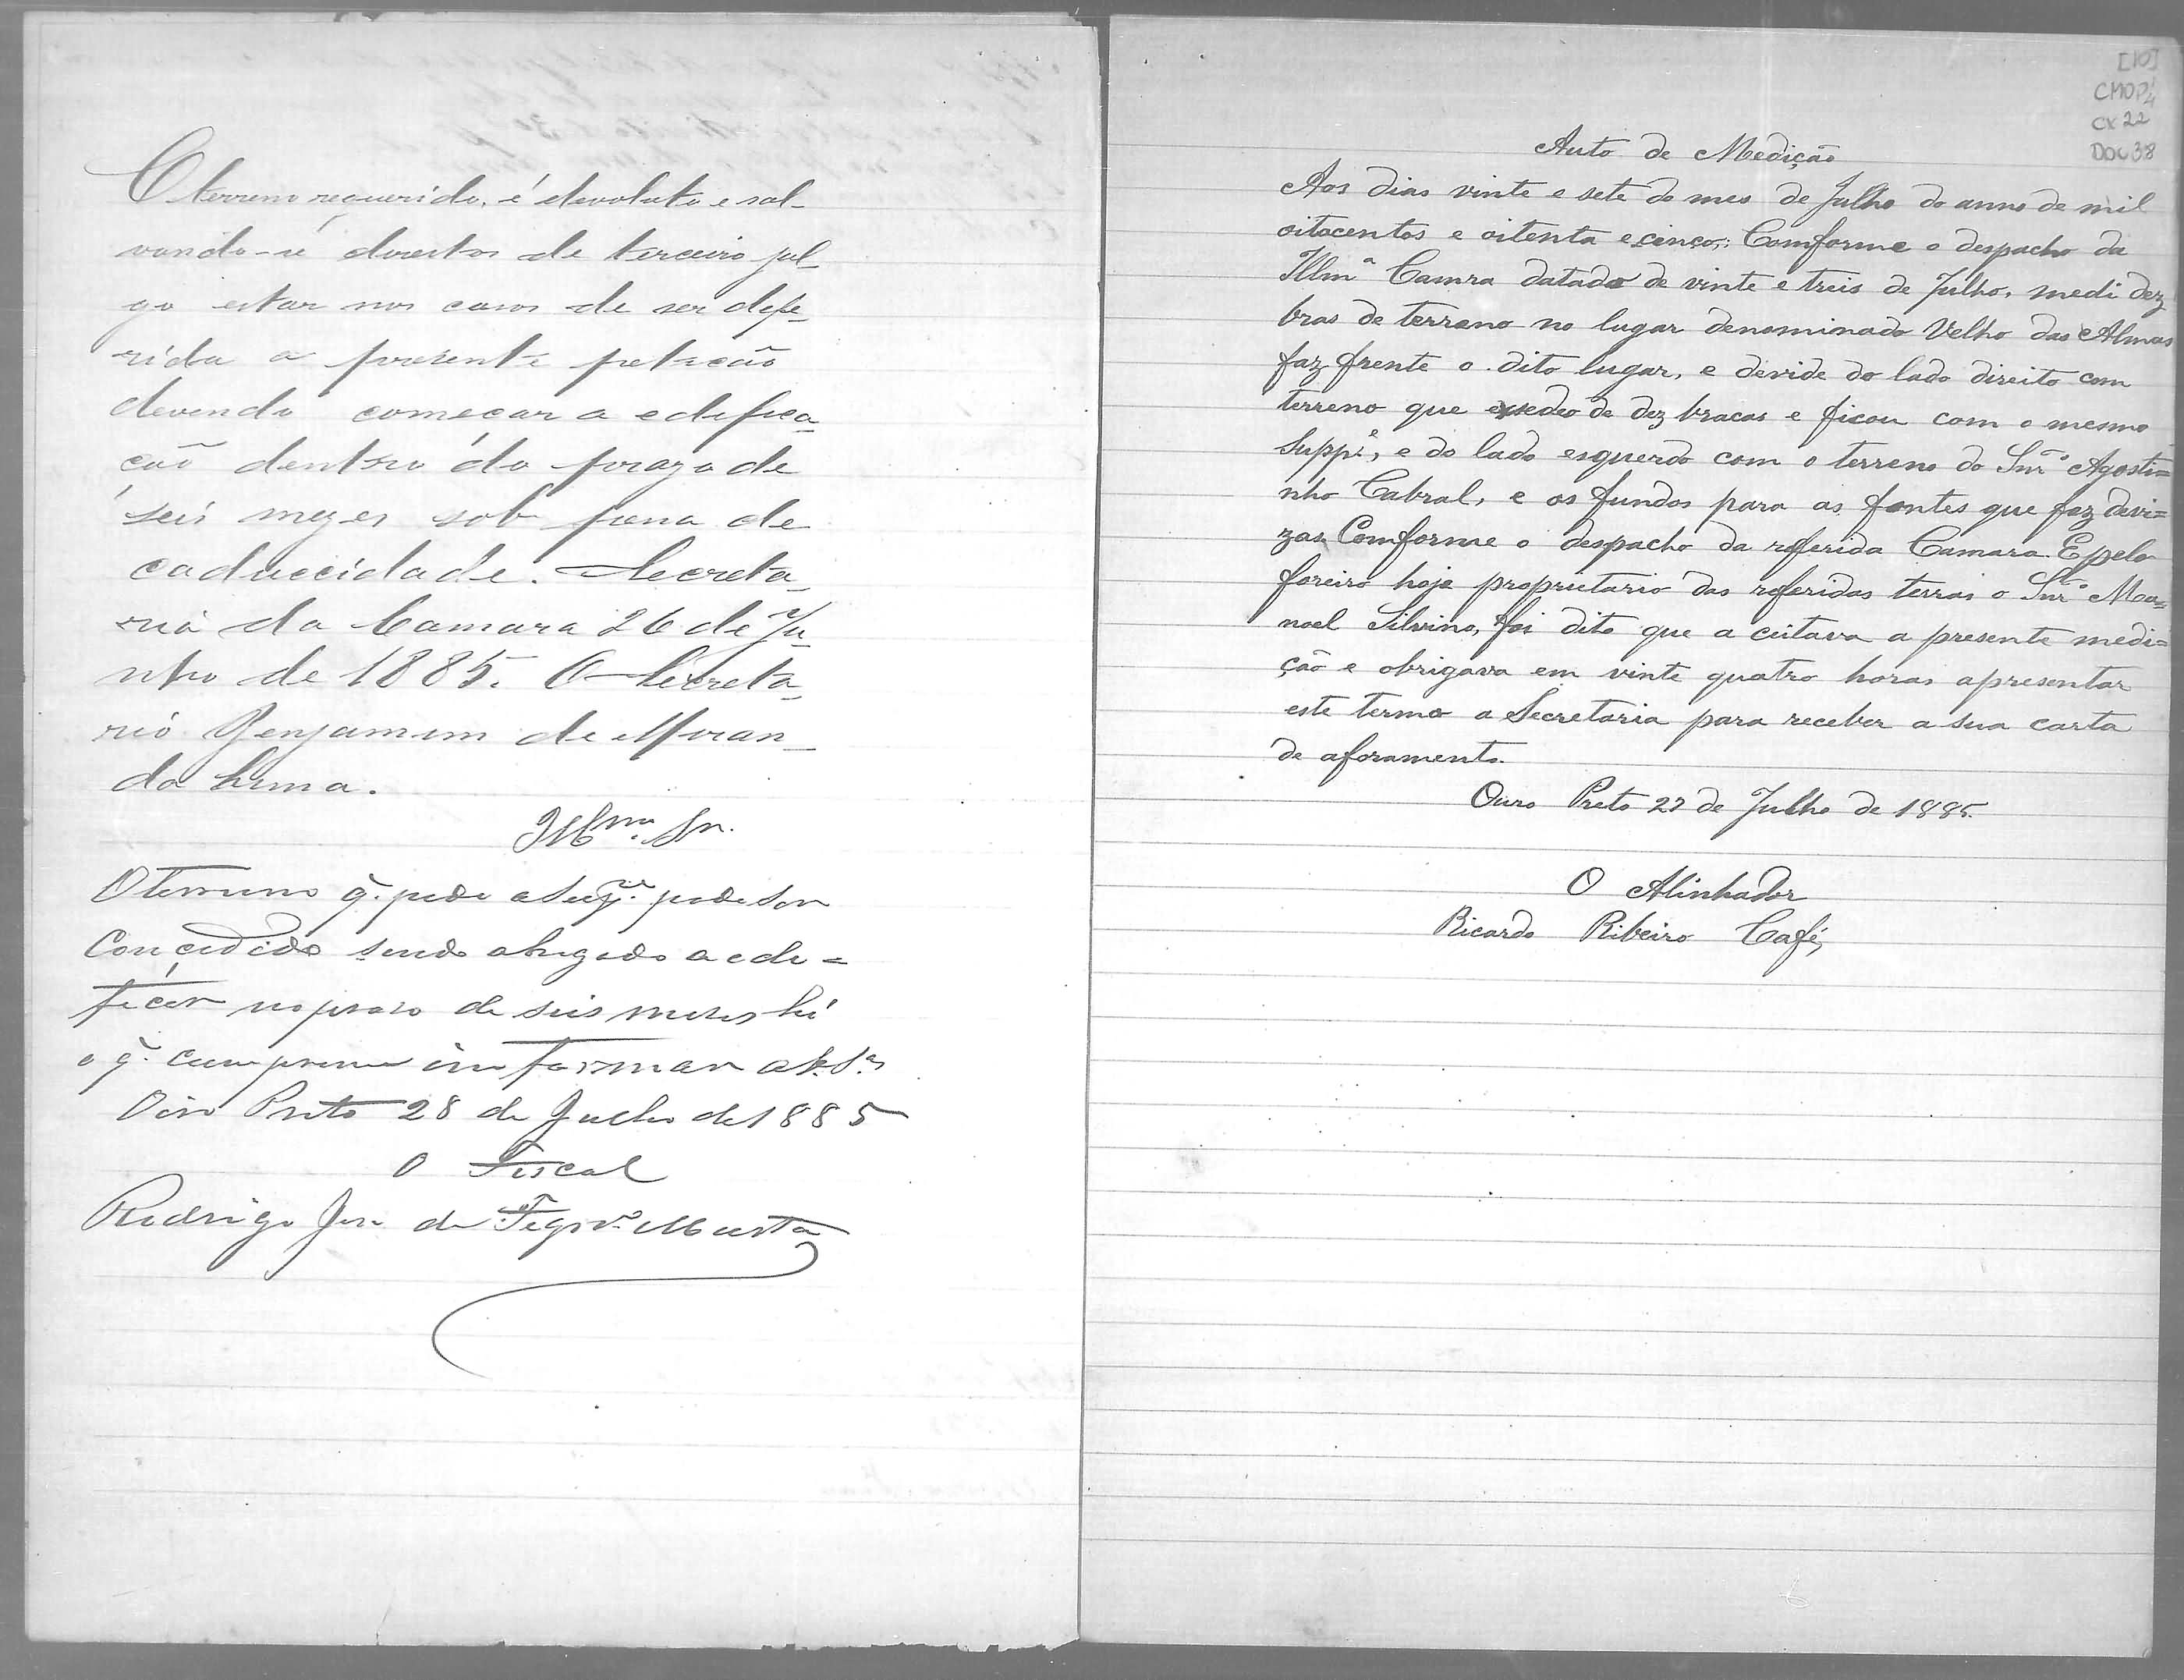 O terreno requerido, é devoluto e sal-
vando-se direitos de terceiro jul-
go estar nos casos de ser defe-
rida a presente petição
devendo começar a edifica-
ção dentro do prazo de
seis mezes sob pena de
caducidade. Secreta-
ria da Camara 26 de Ju-
nho de 1885. O Secreta-
rio Benjamim de Miran-
da Lima.
Illmo. Sr.
O terreno q. pede o Supe. pode ser
Concedido sendo obrigado a edi=
ficar no praso de seis meses hé
o q. cumpreme informar a V.Sas
Oiro Preto 28 de Julho de 1885
O Fiscal
Rodrigo José de Figrdo. Murta
[10]
CMOP
CX 22
DOC 38
Auto de Medição
Aos dias vinte e sete do mes de Julho do anno de mil
oitocentos e oitenta e cinco; Comforme o despacho da
Illma Camra datado de vinte e treis de Julho, medi dez
bras de terreno no lugar denominado Velho das Almas
faz frente o dito lugar, e devide do lado direito com
terreno que exsedeo de dez bracas e ficou com o mesmo
Suppe, e do lado esquerdo com o terreno do Snro Agosti=
nho Cabral, e os fundos para as fontes que faz devi=
zas. Comforme o despacho da referida Camara. E pelo
foreiro hoje proprietario das referidas terras o Snro Ma=
noel Silvino, foi dito que a ceitava a presente medi=
ção e obrigava em vinte quatro horas apresentar
este termo a Secretaria para receber a sua carta
de aforamento.
Ouro Preto 27 de Julho de 1885.
O Alinhador
Ricardo Ribeiro Café,